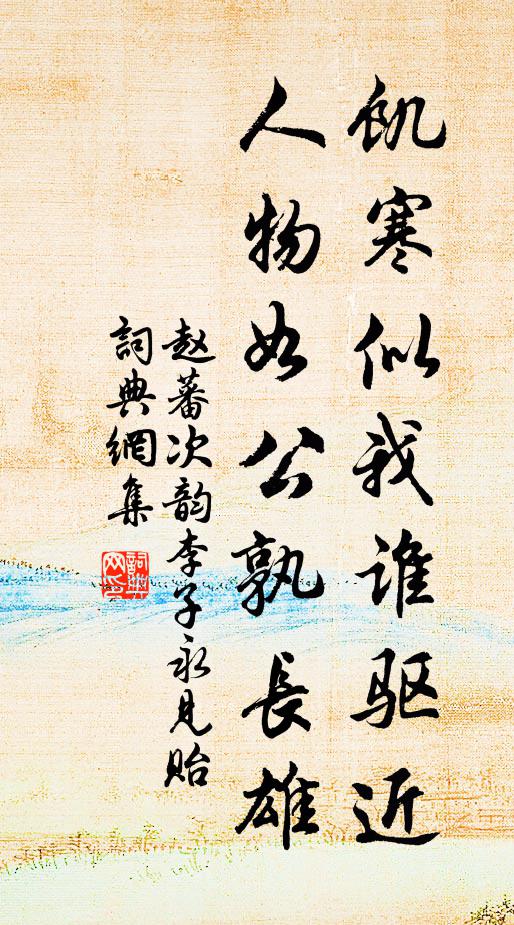 飢寒似我谁驱近
人物如公孰長雄
赵蕃次韵李子永見贻
詞典網集